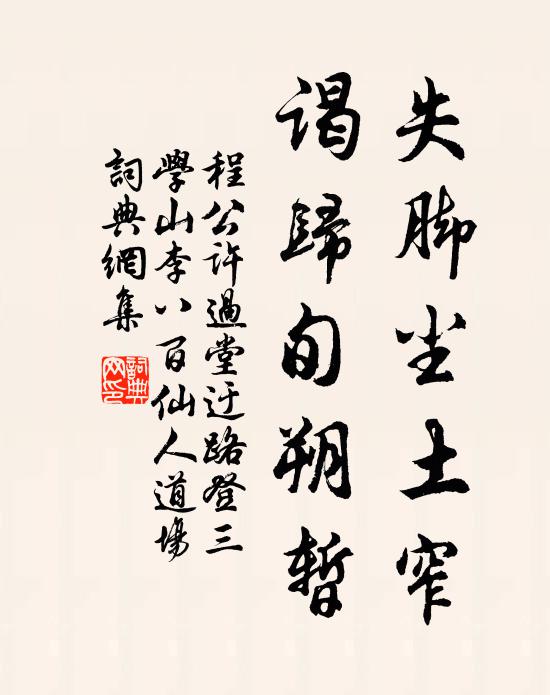 失脚尘土窄
谒歸旬朔暫
程公许過堂迂路登三
學山李八百仙人道場
詞典網集
詞典網印